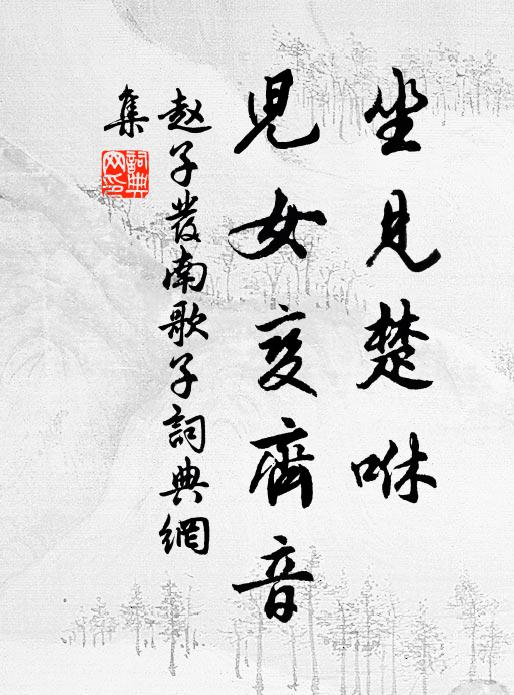 坐見楚咻
兒女变齊音
赵子發南歌子詞典網
集
詞典
网印